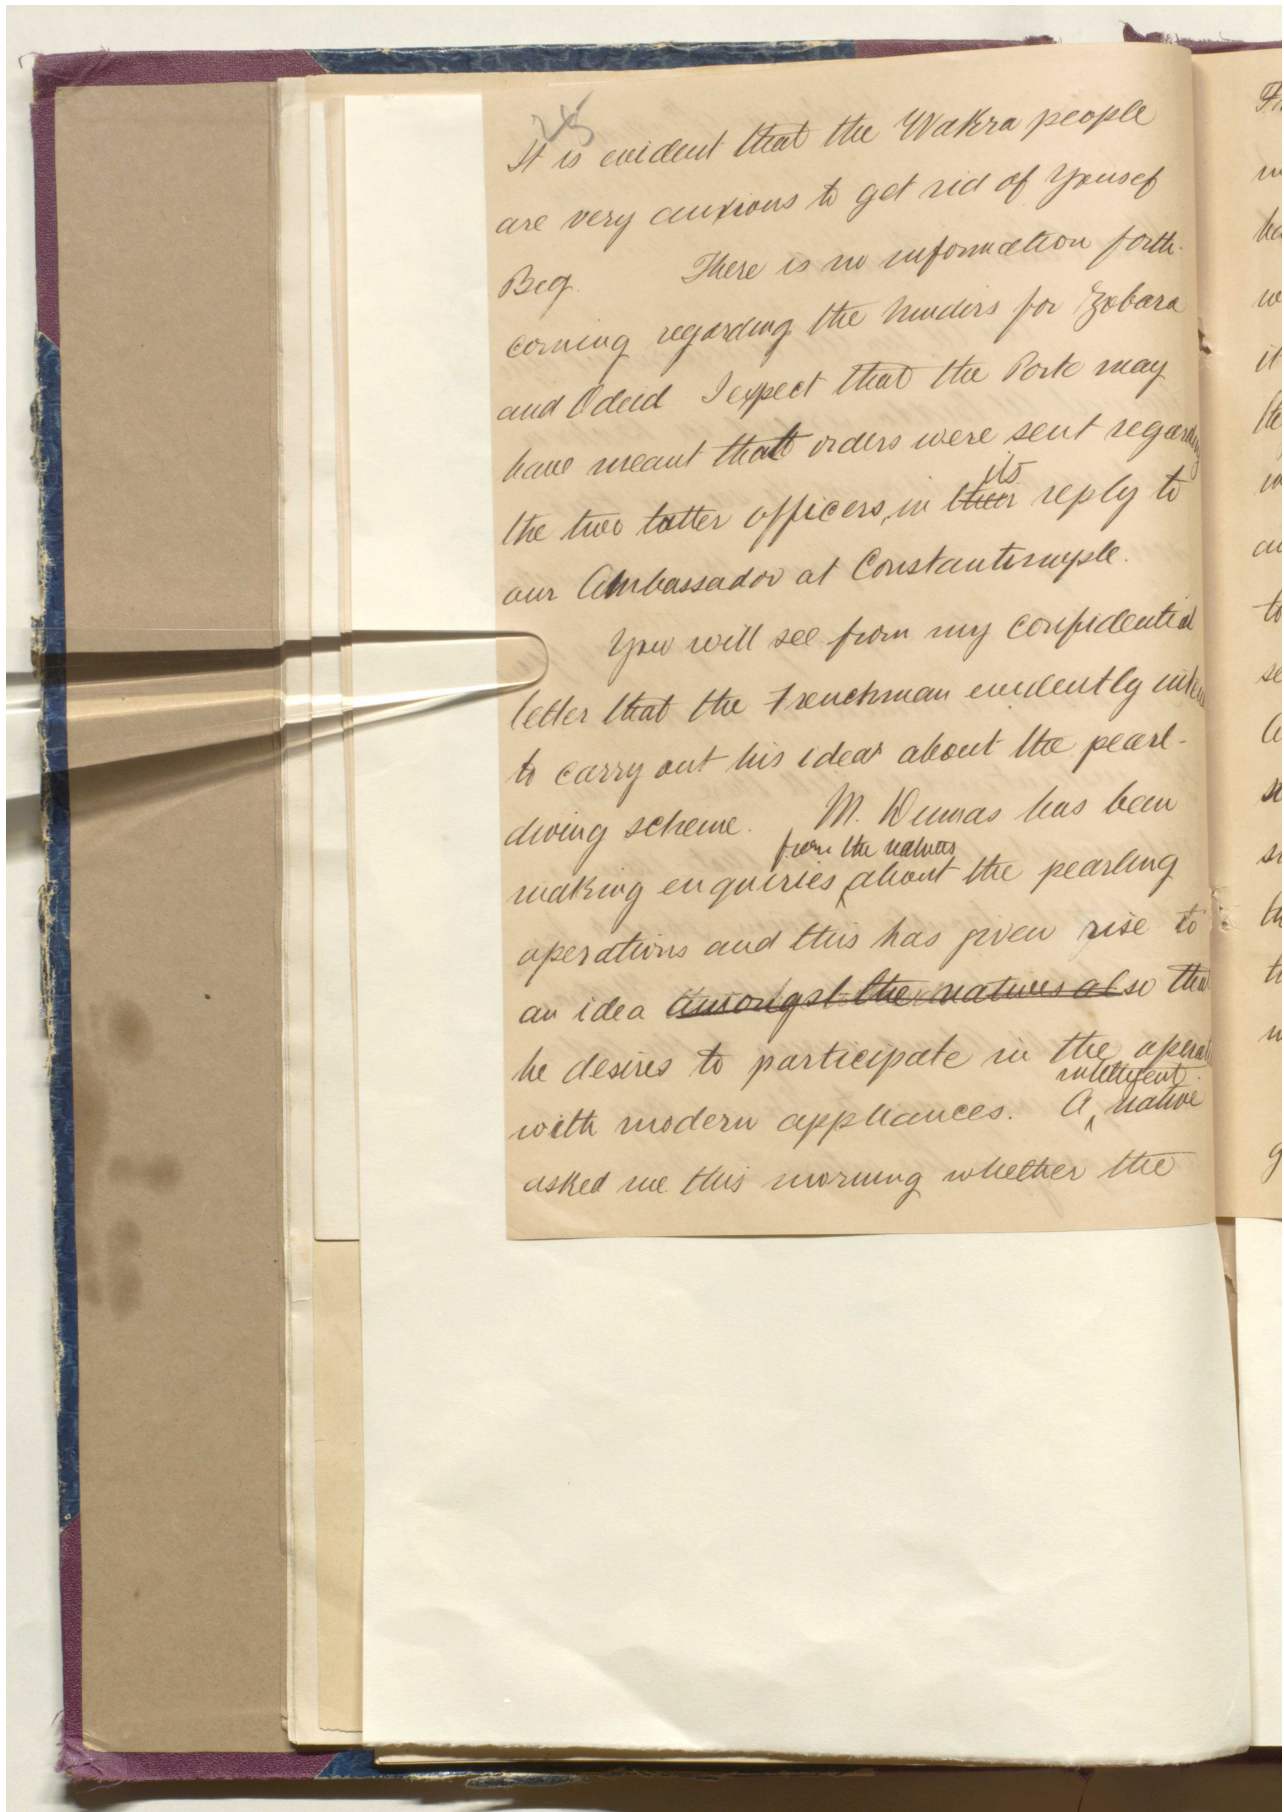 28
It is evident that the Wakra people
are very anxious to get rid of Yousef
Beg. There is no information forth-
coming regarding the Mudirs for Zobara
and Odeid I expect that the Porte may
have meant that orders were sent regarding
the two latter officers, in their its reply to
our Ambassador at Constantinople.
You will see from my confidential
letter that the Frenchman evidently
to carry out his idea about the pearl-
diving scheme. M. Dumas has been
from the natives
making enquiries about the pearling
operations and this has given rise to
an idea amongst the natives also that
he desires to participate in the
intelligent
with modern appliances. A native
asked me this morning whether the